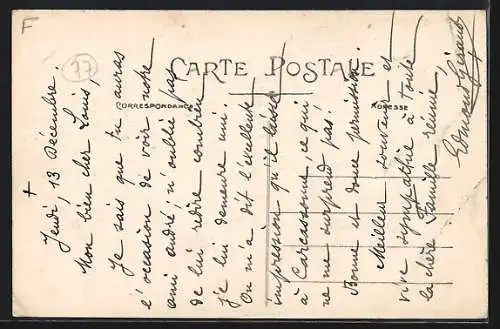 F
77
CARTE POSTALE
CORRESPONDANCE
ADRESSE
+
Jeudi, 13 Décembre.
Mon bien cher Louis,
Je sais que tu auras
l'occasion de voir notre
ami andré; n'oublie pas
de lui redire combien
je lui demeure uni.
On m'a dit l'excellente
impression qu'il laisse
à Carcassonne, ce qui
ne me surprend pas!
Bonne et douce permission.
Meilleur souvenir et
vive sympathie à toute
la chère famille réunie,
Edmond Giraud